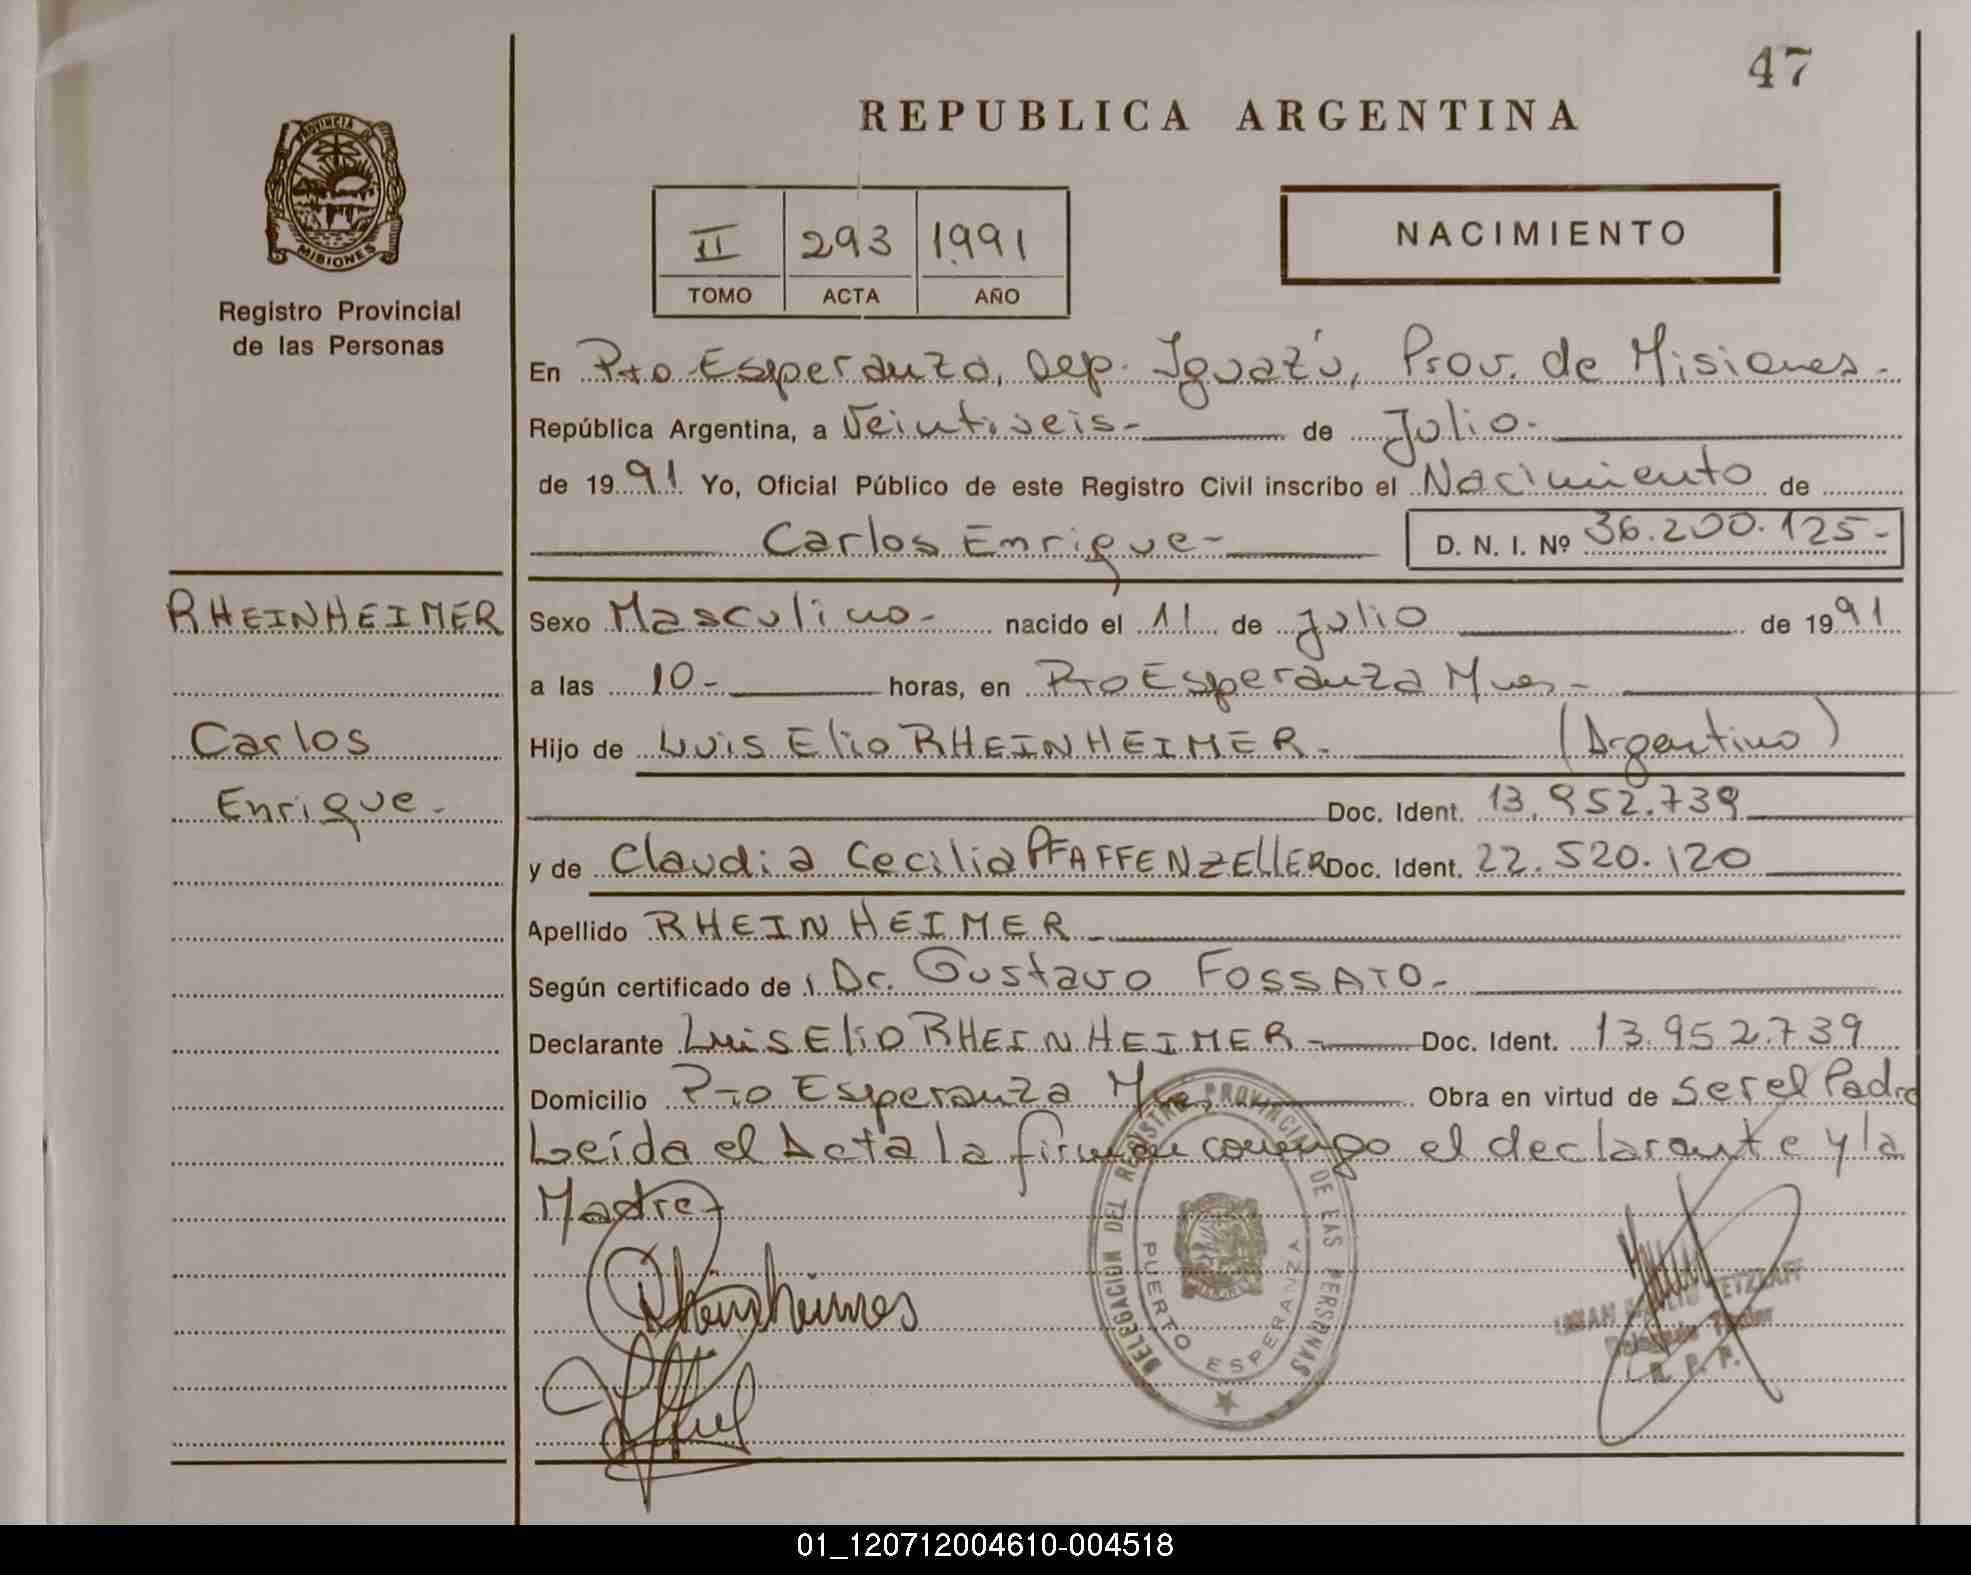 47
REPUBLICA ARGENTINA
PROVINCIA DE
MISIONES
Registro Provincial
de las Personas
II 293 1991
TOMO ACTA AÑO
NACIMIENTO
En Pto Esperanza, Dep. Iguazú, Prov. de Misiones.
República Argentina, a Veintiseis- de Julio.
de 1991 Yo, Oficial Público de este Registro Civil inscribo el Nacimiento de
Carlos Enrique- D. N. I. Nº 36.200.125-
RHEINHEIMER
Carlos
Enrique-
Sexo Masculino- nacido el 11 de julio de 1991
a las 10- horas, en Pto Esperanza Mnes-
Hijo de Luis Elio RHEINHEIMER- (Argentino)
Doc. Ident. 13.952.739
y de Claudia Cecilia PFAFFENZEllER Doc. Ident. 22.520.120
Apellido RHEINHEIMER-
Según certificado de Dr. Gustavo FOSSATO-
Declarante Luis Elio RHEINHEIMER- Doc. Ident. 13.952.739
Domicilio Pto Esperanza Obra en virtud de ser el Padre
Leída el Acta la firman conmigo el declarante y la
Madre-
Rheinheimer
DELEGACION DEL REGISTRO PROVINCIAL DE LAS PERSONAS
PUERTO ESPERANZA
R. P. P.
01_120712004610-004518